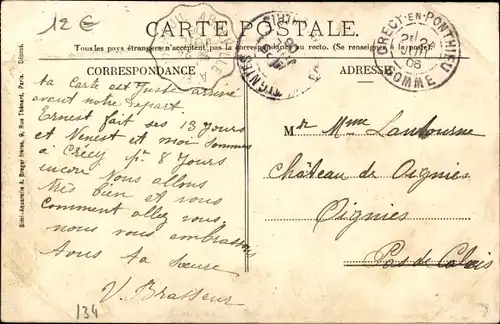 12 €
CARTE POSTALE.
Tous les pays étrangers n'acceptent pas la correspondance au recto. (Se renseigner à la poste).
CORRESPONDANCE
ADRESSE
CRÉCY-EN-PONTHIEU
SOMME
08
OIGNIES
Simi-Aquarelle A. Breger frères, 9, Rue Thénard, Paris. Déposé.
ta Carte est juste arrivé
avant notre départ
Ernest fait ses 13 Jours
et et moi sommes
à Crécy pr 8 Jours
encore nous allons
très bien et vous
Comment allez vous
nous vous embrassons
tous ta sœur
V. Brasseur
134
Mr Mme Lambourne
Château de Oignies
Oignies
Pas de Calais